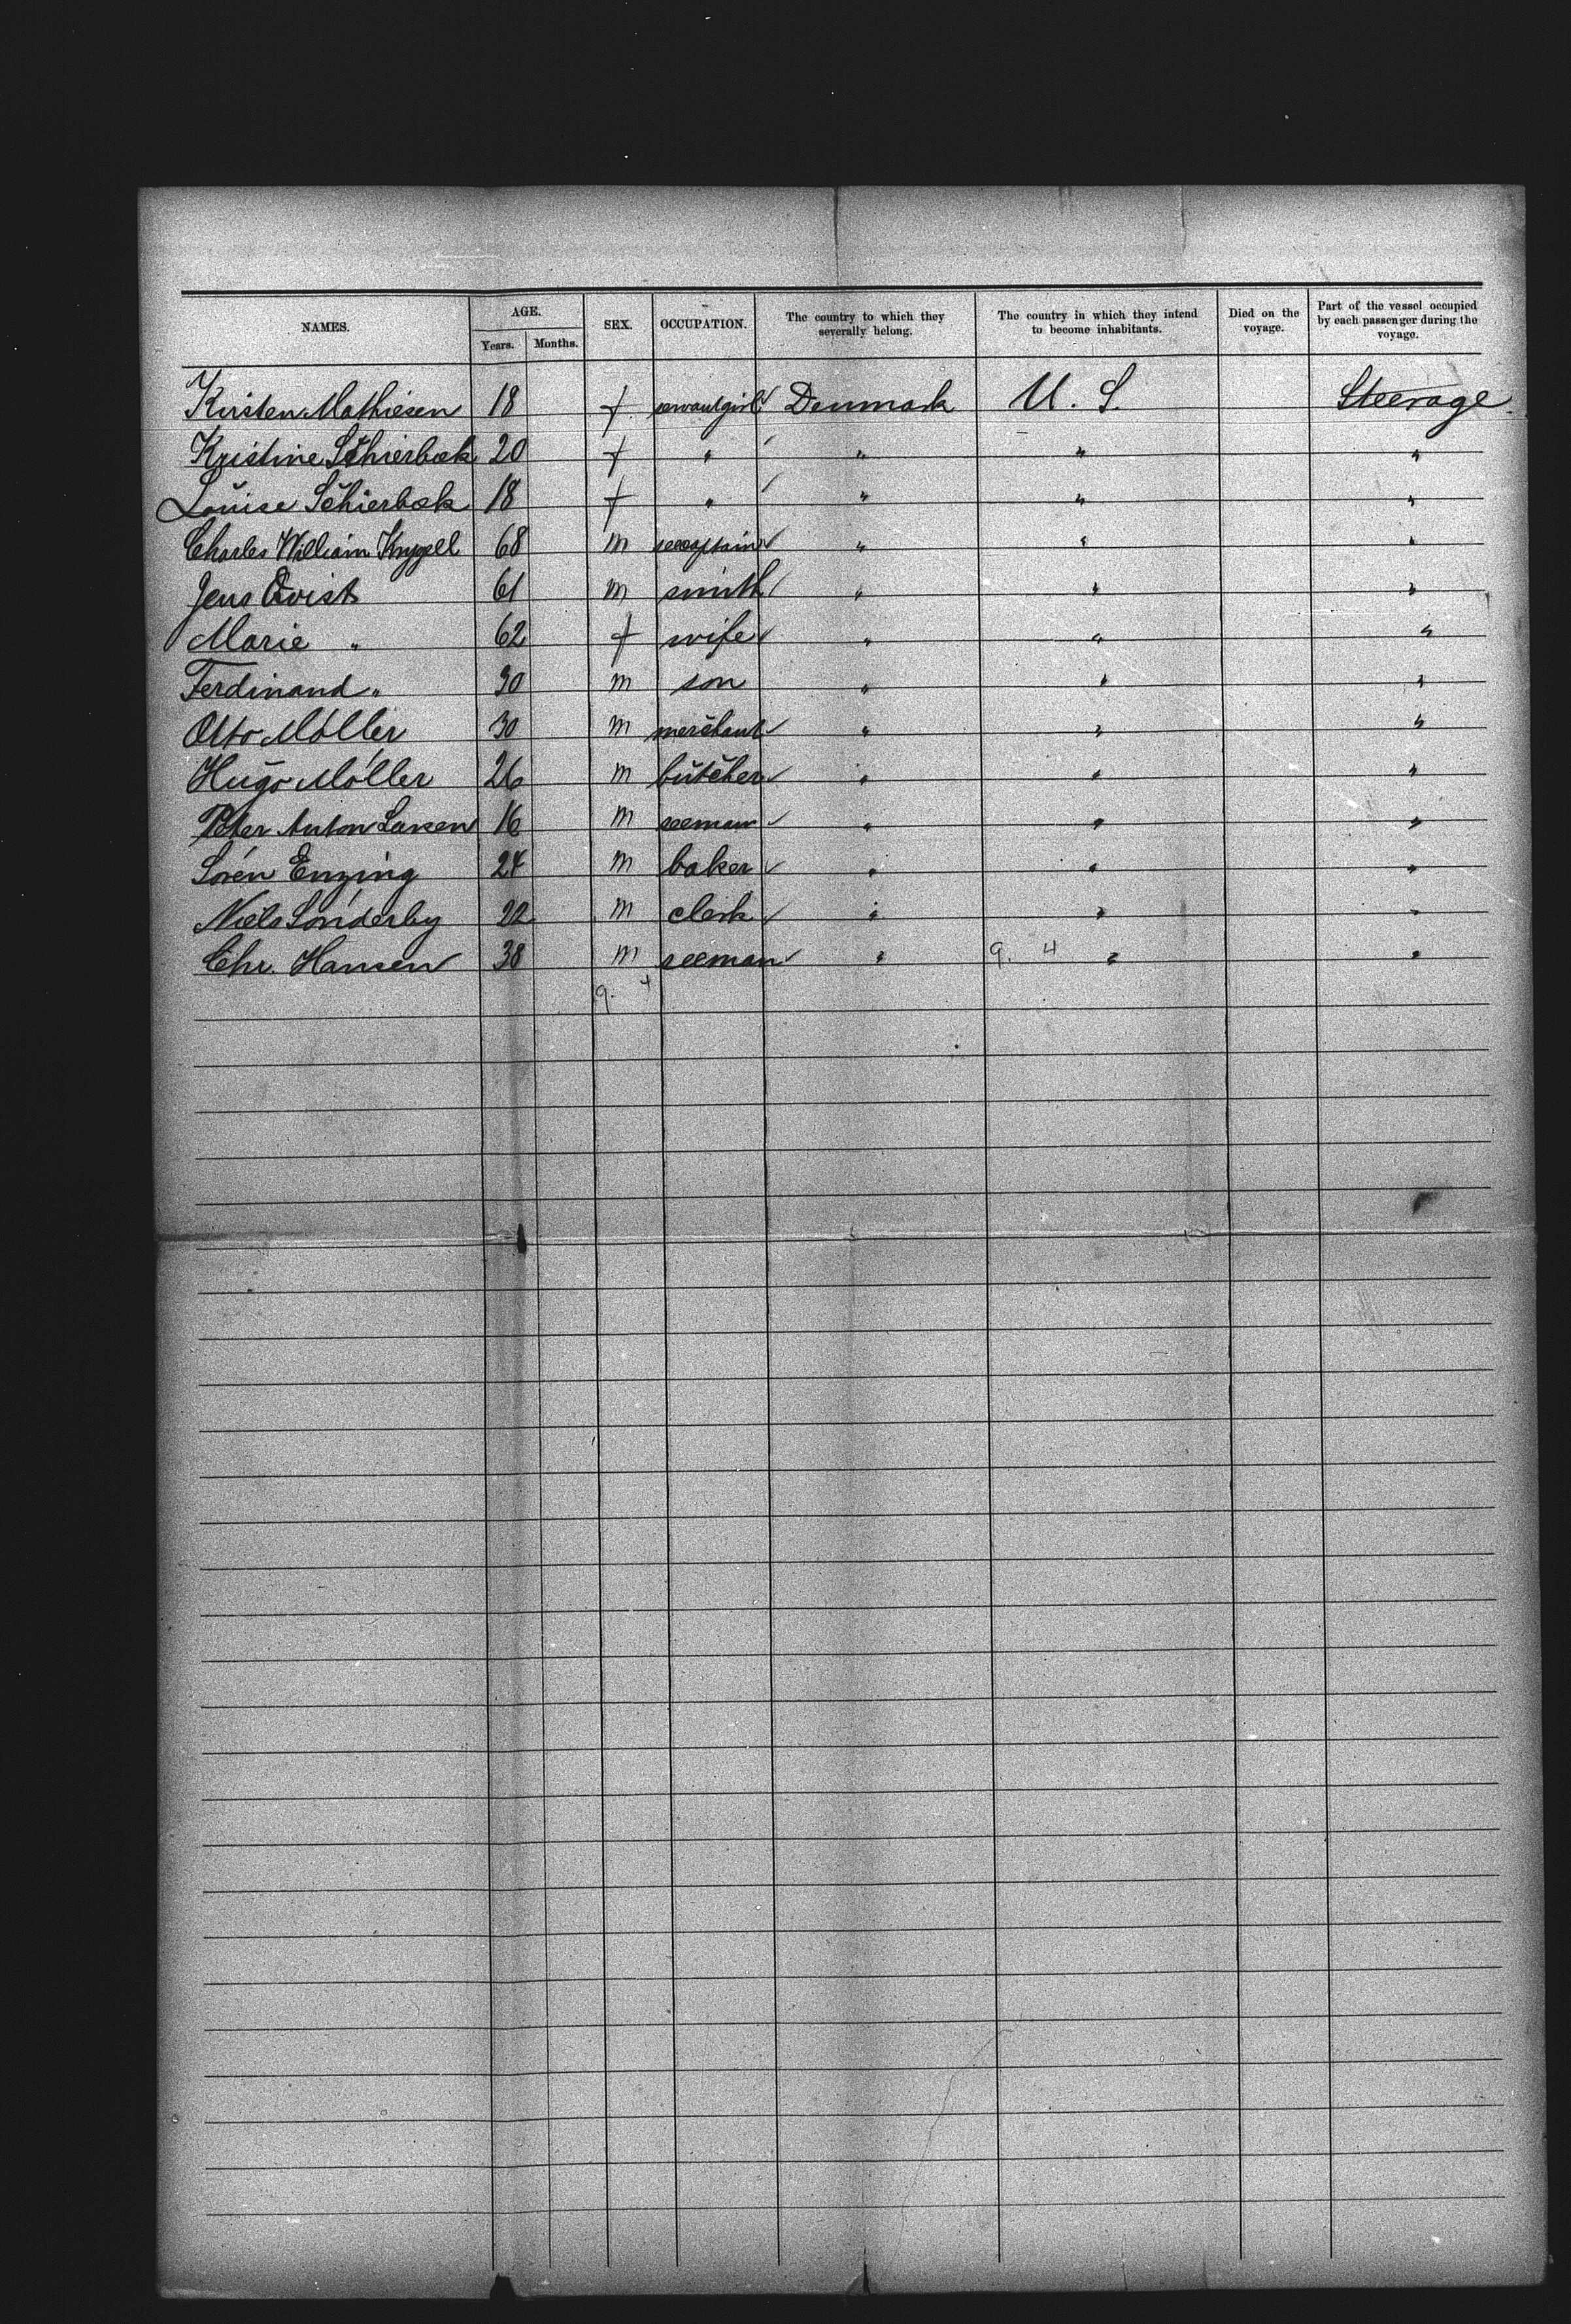 NAMES. AGE. SEX. OCCUPATION. The country to which they severally belong. The country in which they intend to become inhabitants. Died on the voyage. Part of the vessel occupied by each passenger during the voyage.
Years. Months.
Kirsten Mathiesen 18 f servantgirl Denmark U. S. Steerage
Kristine Schierbæk 20 f " " " "
Louise Schierbæk 18 f " " " "
Charles William 68 m " " "
Jens Qvist 61 m smith " " "
Marie " 62 f wife " " "
Ferdinand " 30 m son " " "
Otto Møller 30 m merchant " " "
Hugo Møller 26 m butcher " " "
Peter Anton Larsen 16 m seeman " " "
Sören Enzing 24 m baker " " "
Niels Sönderby 22 m clerk " " "
Chr. Hansen 38 m seeman " 9. 4 " "
9. 4